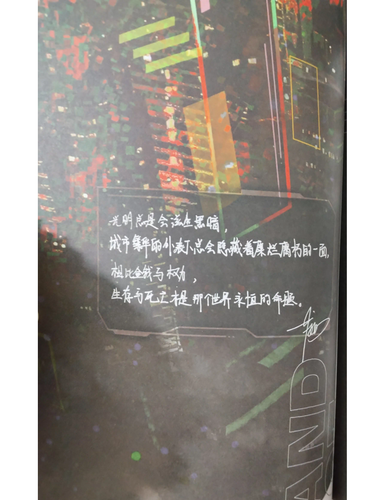 光明总是会滋生黑暗，
城市繁华的外表下总会隐藏着糜烂腐朽的一面，
相比金钱与权力，
生存与死亡才是那个世界永恒的命题。
AND